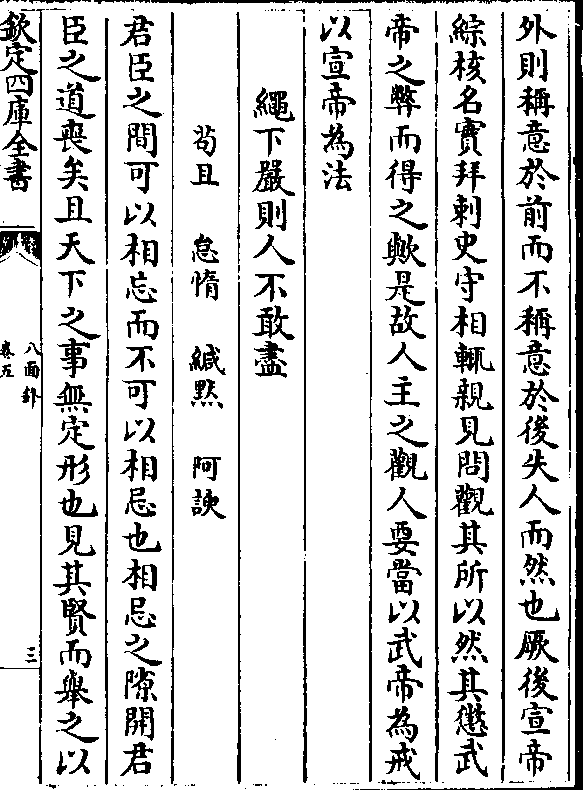 外則稱意於前而不稱意於後失人而然也厥後宣帝
綜核名實拜刺史守相輒親見問觀其所以然其懲武
帝之弊而得之歟是故人主之觀人要當以武帝為戒
以宣帝為法
繩下嚴則人不敢盡
苟且 怠惰 緘默 阿諛
君臣之間可以相忘而不可以相忌也相忌之隙開君
臣之道喪矣且天下之事無定形也見其賢而舉之以
欽定四庫全書
八面鋒
卷五
三